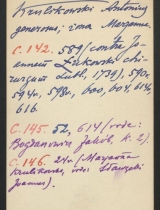 Krulikowski Antoni,
generosus; żona Maryanna.
C. 142. 589 (contra Jo-
annem Żukowski chi-
rurgum Lubl. 1739), 590,
594v, 598v, 600, 604, 614,
616.
C. 145. 52, 614 (vide:
Bogdanowicz Jakób, k. 2).
C. 146. 24v (Maryanna
Krulikowska, vide:
Joannes).